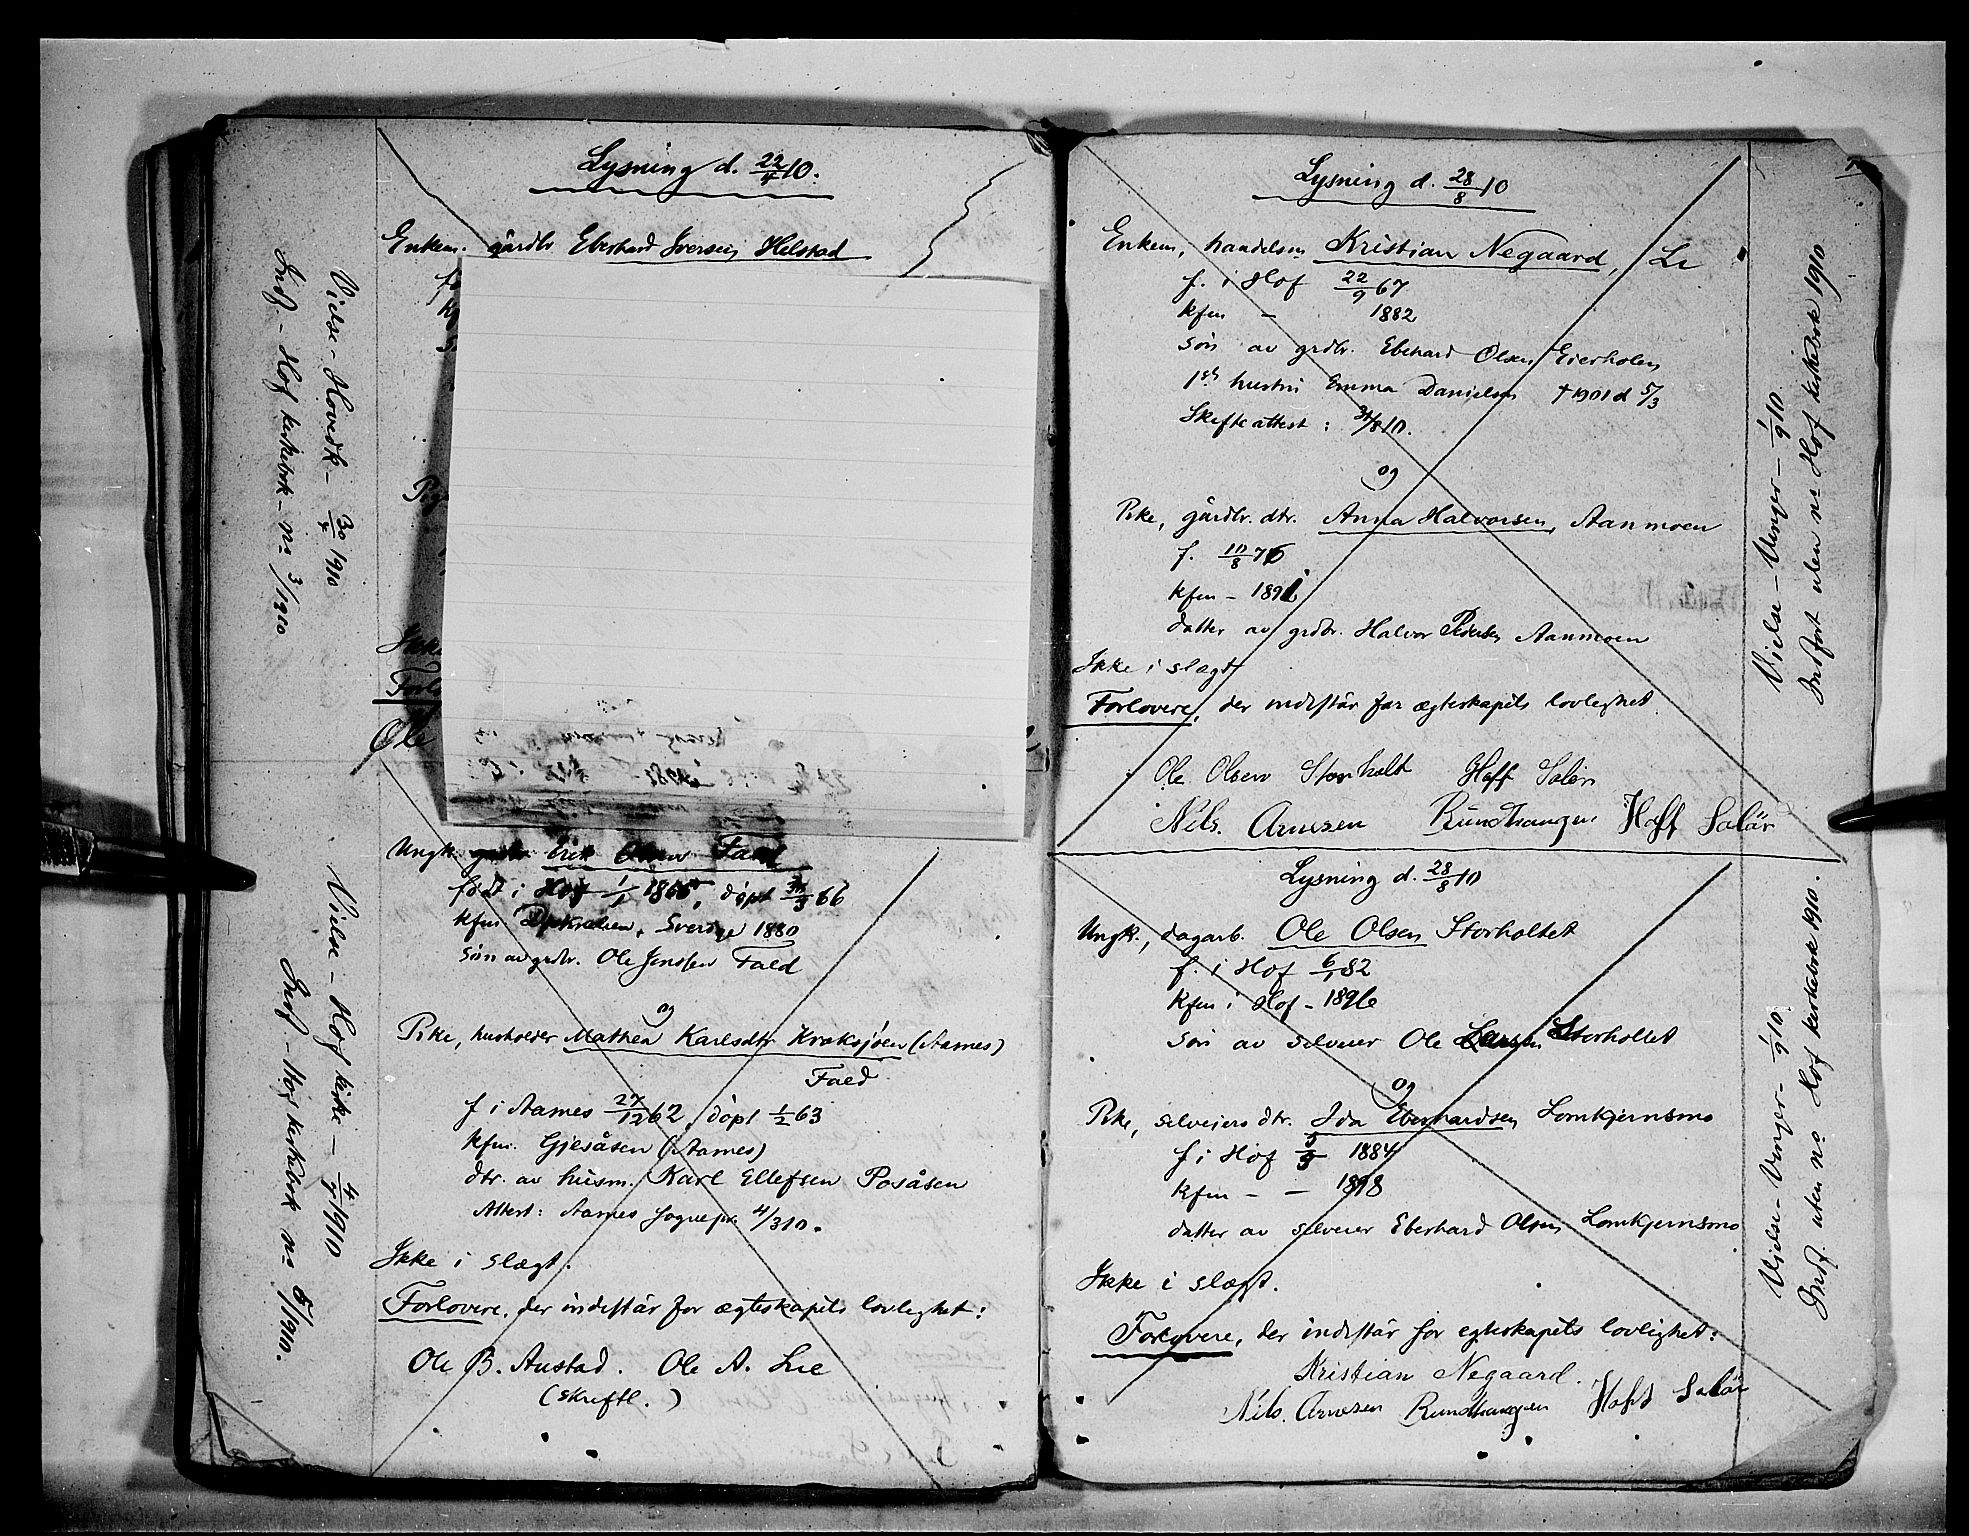 Lysning d. 22/4 10.
Enkem. gårdbr. Eberhard Iversen Helstad
Ikke
Forlo
Ole
Vielse - Hovedk - 30/4 1910
Indf. - Hof kirkebok - no 3/1910
Ungk. gårdbr. Erik Olsen Fald
født i Hof 1/1 1866, døpt 30/3 66
kfm. Sverige 1880
Søn av grdbr. Ole Jenssen Fald
og
Pike, husholder Mathea Karlsdtr Kroksjøen (Aasnes)
Fald
f i Aasnes 27/12 62, døpt 1/2 63
kfm. Gjesåsen (Aasnes)
dtr. av husm. Karl Ellefsen Posåsen
Attest: Aasnes sognepr. 4/3 10.
Ikke i slægt.
Forlovere, der indestår for ægteskapets lovlighet:
Ole B. Austad. Ole A. Lie
(skriftl.)
Vielse - Hof kirke - 4/ 1910
Indf - Hof kirkebok no 5/1910.
Lysning d. 28/8 10
Enkem, handelsm Kristian Negaard, Li
f. i Hof 22/9 67
kfm - 1882
Søn av grdbr. Eberhard Olsen Eierholen
1ste hustru Emma Danielsen † 1901 d 5/3
Skifteattest: 31/8 10.
og
Pike, gårdbr. dtr. Anna Halvorsen, Aanmoen
f. 10/8 76
kfm - 1891
datter av grdbr. Halvor Pedersen Aanmoen
Ikke i slægt
Forlovere, der indestår for ægteskapets lovlighet.
Ole Olsen Storholt Hoff Solør
Nils. Arnesen Rundhaugen Hoff Solør
Vielse - Vinger - 1/9 10.
Indført uten no Hof kirkebok 1910
Lysning d. 28/8 10
Ungk., dagarb. Ole Olsen Storholtet
f. i Hof 6/1 82
kfm i Hof - 1896
Søn av selveier Ole Larsen Storholtet
og
Pike, selveiers dtr. Ida Eberhardsen Lomtjernsmo
f i Hof 5/9 1884
kfm - - 1898
datter av selveier Eberhard Olsen Lomtjernsmo
Ikke i slægt.
Forlovere, der indestår for egteskapets lovlighet:
Kristian Negaard.
Nils. Arnesen Rundhaugen Hoff Solør
Vielse - Vinger - 1/9 10.
Indf. uten no Hof kirkebok 1910.